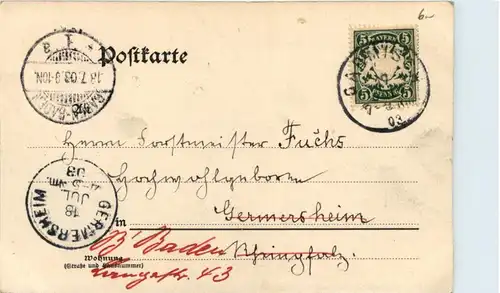 6-
Postkarte
BAYERN
5 5
5 PFENNIG 5
03
18.7.03. 9-10N.
BADEN-BADEN
Herrn Forstmeister Fuchs
Hochwohlgeboren
GERMERSHEIM
18
JUL
03
in Germersheim
B. Baden Rheinpfalz.
Wohnung
(Straße und Hausnummer)
Langestr. 43